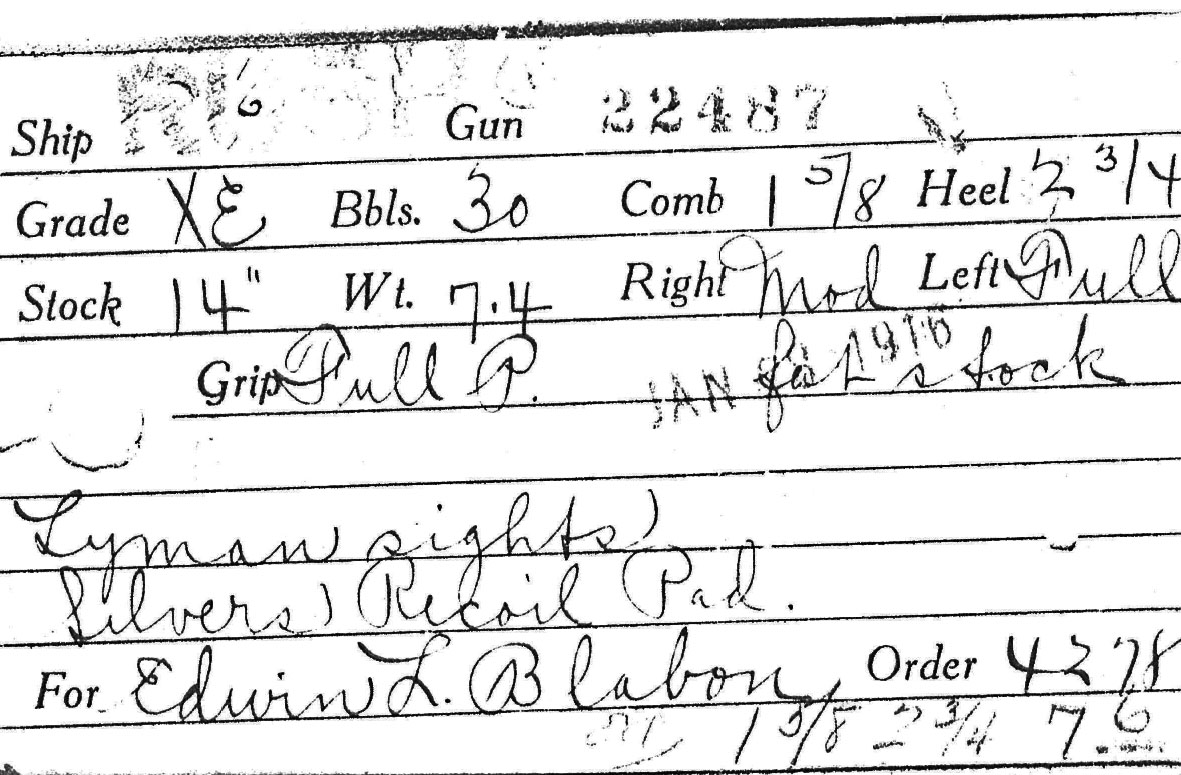 Ship RUSH 6 Gun 22487
Grade XE Bbls. 30 Comb 1 5/8 Heel 2 3/4
Stock 14" Wt. 7.4 Right Mod Left Full
Grip Full P. JAN 1916 fat stock
Lyman sights
Silvers Recoil Pad.
For Edwin L. Blabon, Order 4278
1 5/8 2 3/4 7 6